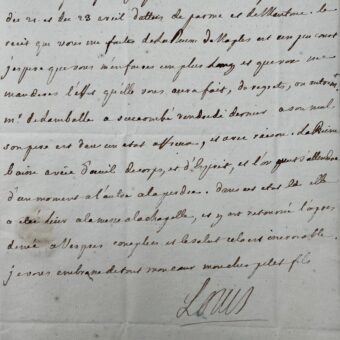 du 21 et du 23 avril dattées de parme et de Mantoue. le
recit que vous me faites de la Reine de Naples est un peu court
j'espere que vous m'en faires un plus long et que vous me
manderes l'effet qu'elle vous aura fait, des regrets, ou autrem.t
m.r de Lamballe a succombé vendredi dernier a son mal
son pere est dans un etat affreux, et avec raison. la Reine
baisse a veüe d'oeuil de corps, et d'esprit, et l'on peut s'attendre
d'un moment a l'autre a la perdre. dans cet etat la elle
a été hier a la messe a la chapelle, et y est retournée l'apres
dinée a Vespres complies et le salut cela est incroyable.
je vous embrasse de tout mon coeur mon cher petit fils
Louis